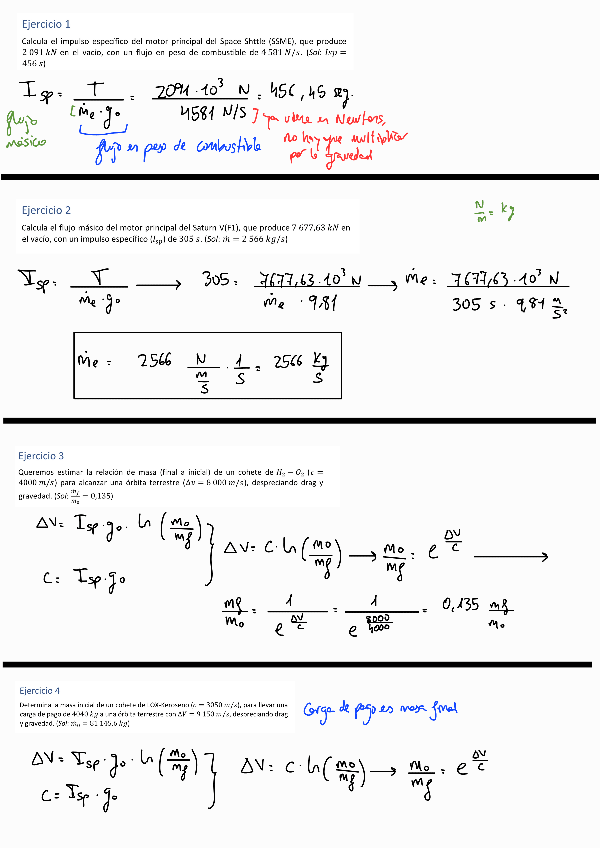 Ejercicio 1
Calcula el impulso específico del motor principal del Space Shttle (SSME), que produce
2 091 kN en el vacío, con un flujo en peso de combustible de 4 581 N/s. (Sol: Isp =
456 s)
I_sp = T / [ṁe · g₀ = 2091 · 10³ N / 4581 N/s = 456,45 seg.
] ya viene en Newtons,
no hay que multiplicar
por la gravedad
flujo
másico
flujo en peso de combustible
Ejercicio 2
Calcula el flujo másico del motor principal del Saturn V(F1), que produce 7 677,63 kN en
el vacío, con un impulso específico (I_sp) de 305 s. (Sol: ṁ = 2 566 kg/s)
N/m = kg
I_sp = T / ṁe · g₀ → 305 = 7677,63 · 10³ N / ṁe · 9.81 → ṁe = 7677,63 · 10³ N / 305 s · 9,81 m/s²
ṁe = 2566 N / m/s · 1/s = 2566 kg/s
Ejercicio 3
Queremos estimar la relación de masa (final a inicial) de un cohete de H₂ − O₂ (c =
4000 m/s) para alcanzar una órbita terrestre (Δv = 8 000 m/s), despreciando drag y
gravedad. (Sol: m_f/m₀ = 0,135)
ΔV = I_sp · g₀ · ln (m₀/mf)
C = I_sp · g₀
ΔV = C · ln (m₀/mf) → m₀/mf = e^ΔV/C →
mf/m₀ = 1 / e^ΔV/C = 1 / e^8000/4000 = 0,135 mf/m₀
Ejercicio 4
Determina la masa inicial de un cohete de LOX-Keroseno (c = 3050 m/s), para llevar una
carga de pago de 4040 kg a una órbita terrestre con ΔV = 9 150 m/s, despreciando drag
y gravedad. (Sol: m₀ = 81 145,6 kg)
Carga de pago es masa final
ΔV = I_sp · g₀ · ln (m₀/mf)
C = I_sp · g₀
ΔV = C · ln (m₀/mf) → m₀/mf = e^ΔV/C